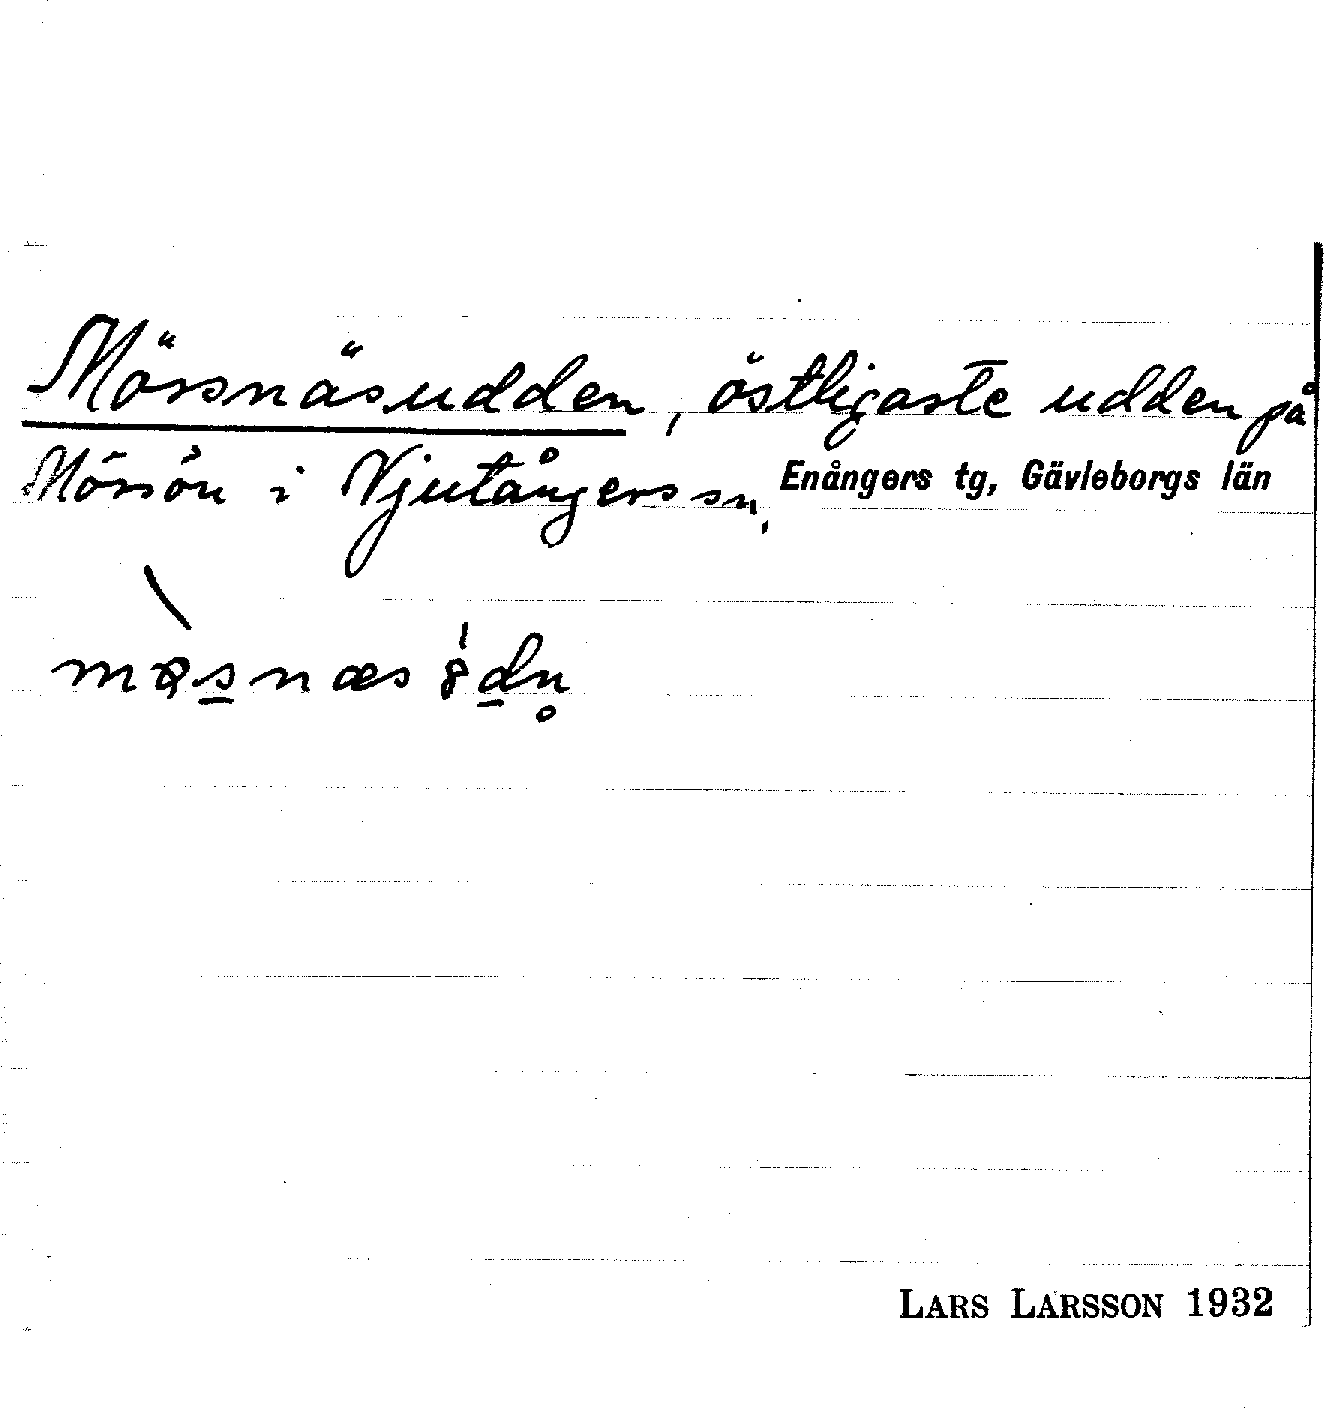 Mössnäsudden, östligaste udden på
Mössön i Njutångers sn, Enångers tg, Gävleborgs län
LARS LARSSON 1932